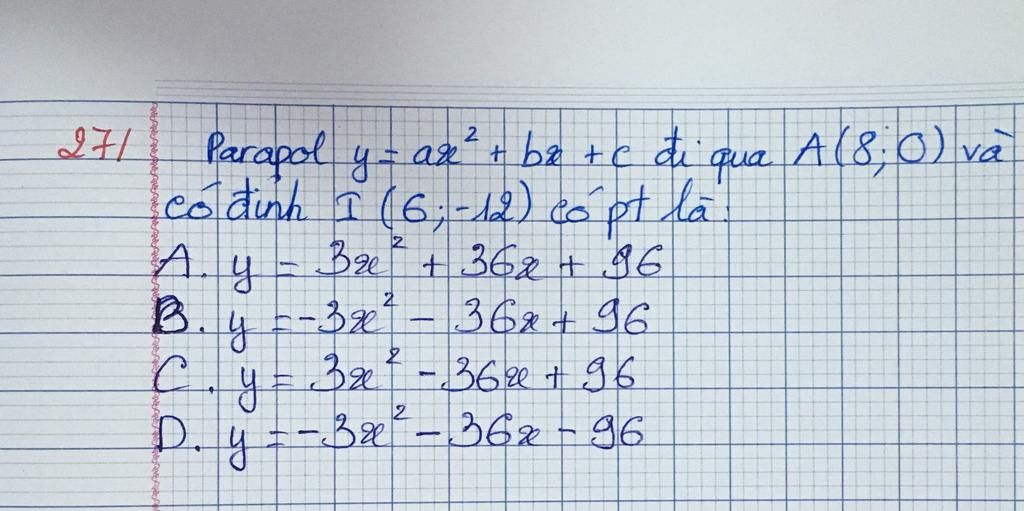 271 Parapol y = ax² + bx + c đi qua A(8;0) và
có đỉnh I (6;-12) có pt là:
A. y = 3x² + 36x + 96
B. y = -3x² - 36x + 96
C. y = 3x² - 36x + 96
D. y = -3x² - 36x - 96